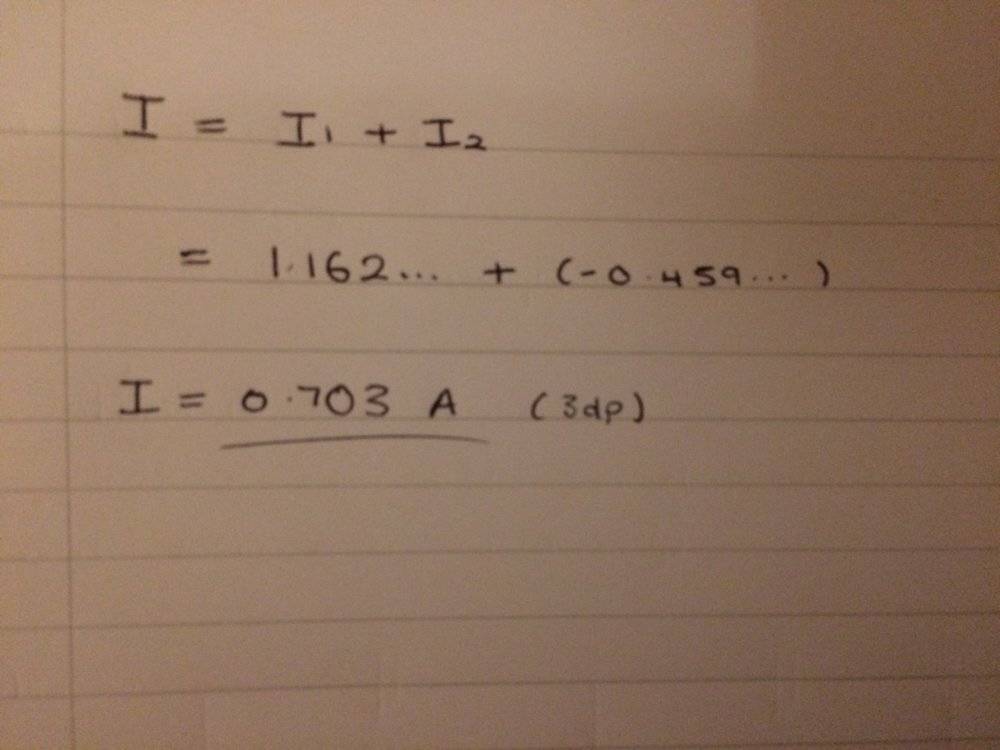 I = I₁ + I₂
= 1.162... + (-0.459...)
I = 0.703 A (3dp)